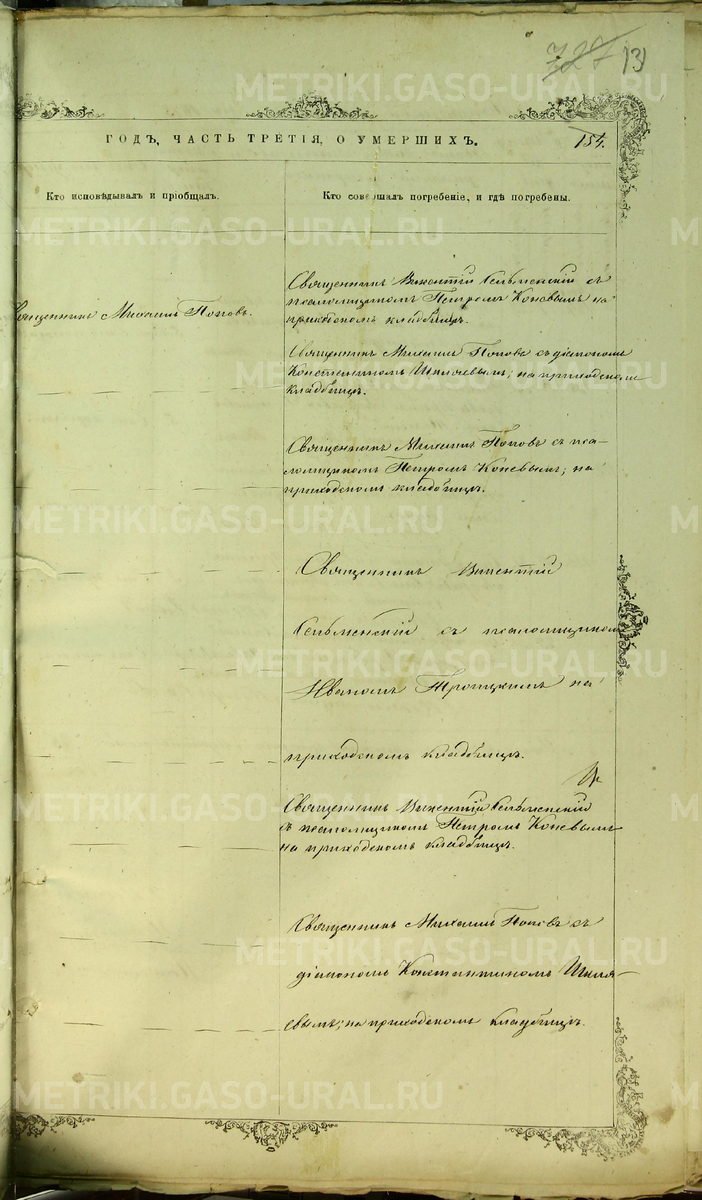 727 131
ГОДЪ, ЧАСТЬ ТРЕТІЯ, О УМЕРШИХЪ.
154.
Кто исповѣдывалъ и пріобщалъ.
Кто совершалъ погребеніе, и гдѣ погребены.
Священникъ Михаилъ Поповъ.
Священникъ Викентій Сельменскій съ
псаломщикомъ Петромъ Коневымъ на
приходскомъ кладбищѣ.
Священникъ Михаилъ Поповъ съ діакономъ
Константиномъ; на приходскомъ
кладбищѣ.
Священникъ Михаилъ Поповъ съ пса-
ломщикомъ Петромъ Коневымъ; на
приходскомъ кладбищѣ.
Священникъ Викентій
Сельменскій съ псаломщикомъ
Иваномъ Троицкимъ на
приходскомъ кладбищѣ.
Священникъ Викентій Сельменскій
съ псаломщикомъ Петромъ Коневымъ
на приходскомъ кладбищѣ.
Священникъ Михаилъ Поповъ съ
діакономъ Константиномъ
на приходскомъ кладбищѣ.
METRIKI.GASO-URAL.RU